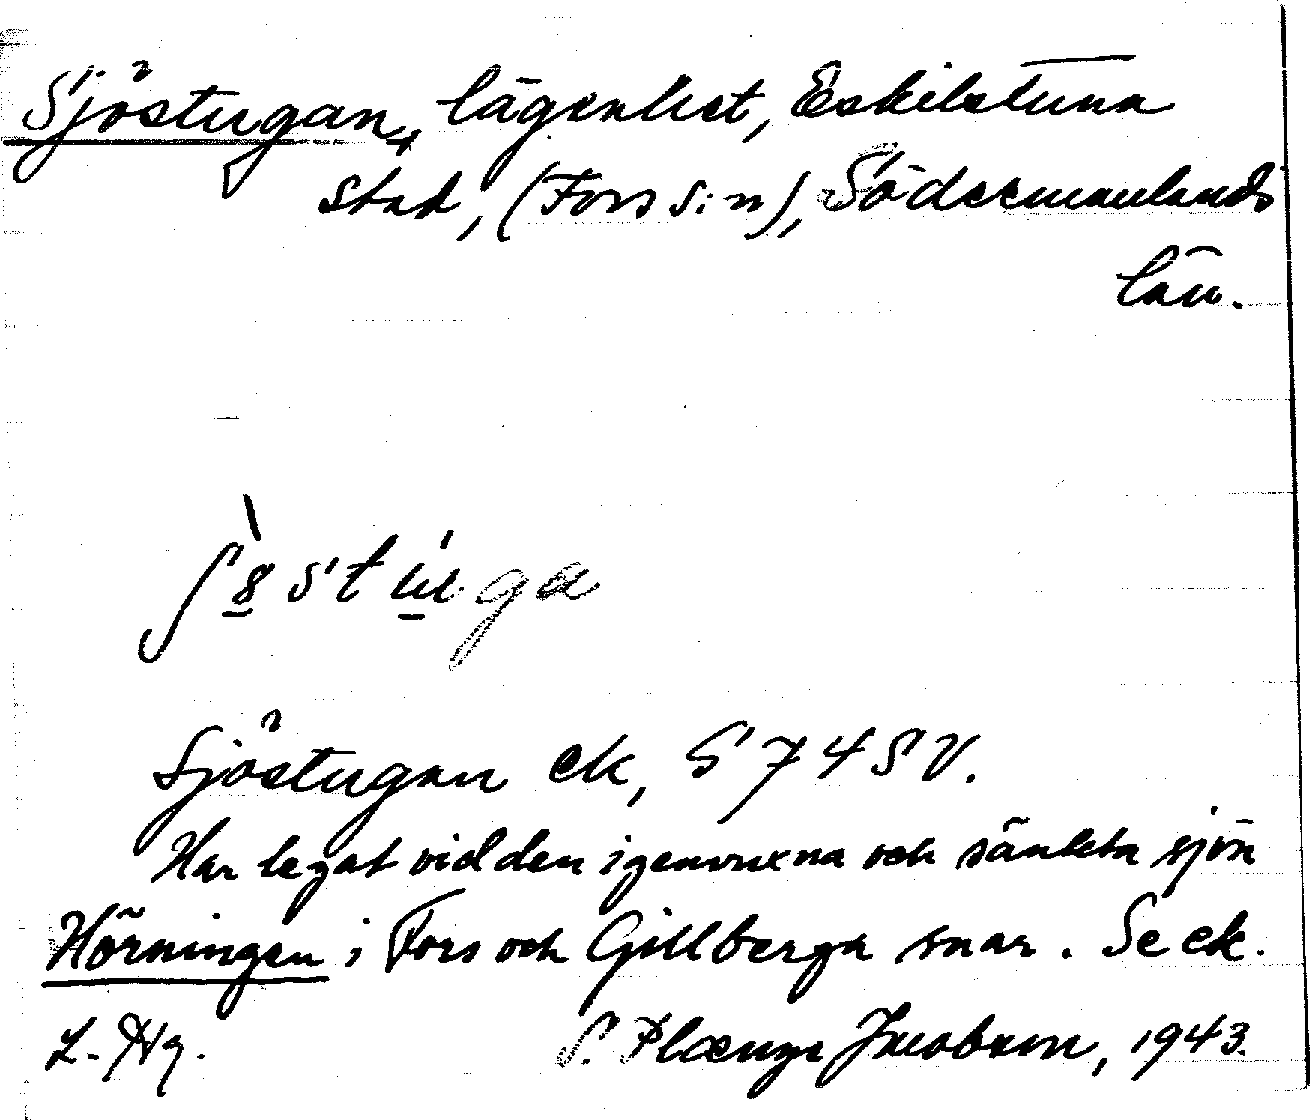 Sjöstugan, lägenhet, Eskilstuna
stad, (Fors s:n), Södermanlands
län.
Sjöstugan ek, S 74 SV.
Har legat vid den igenvuxna och sänkta sjön
Hörningen i Fors och Gillberga snar. Se ek.
S. Plænge Jacobson, 1943.